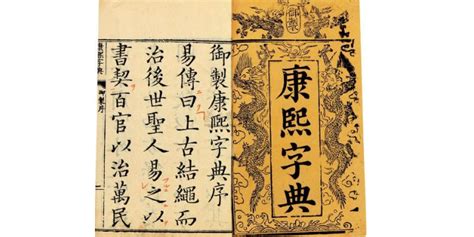 御製
康熙字典
御製康熙字典序
易傳曰上古結繩而
治後世聖人易之以
書契百官以治萬民
康熙字典